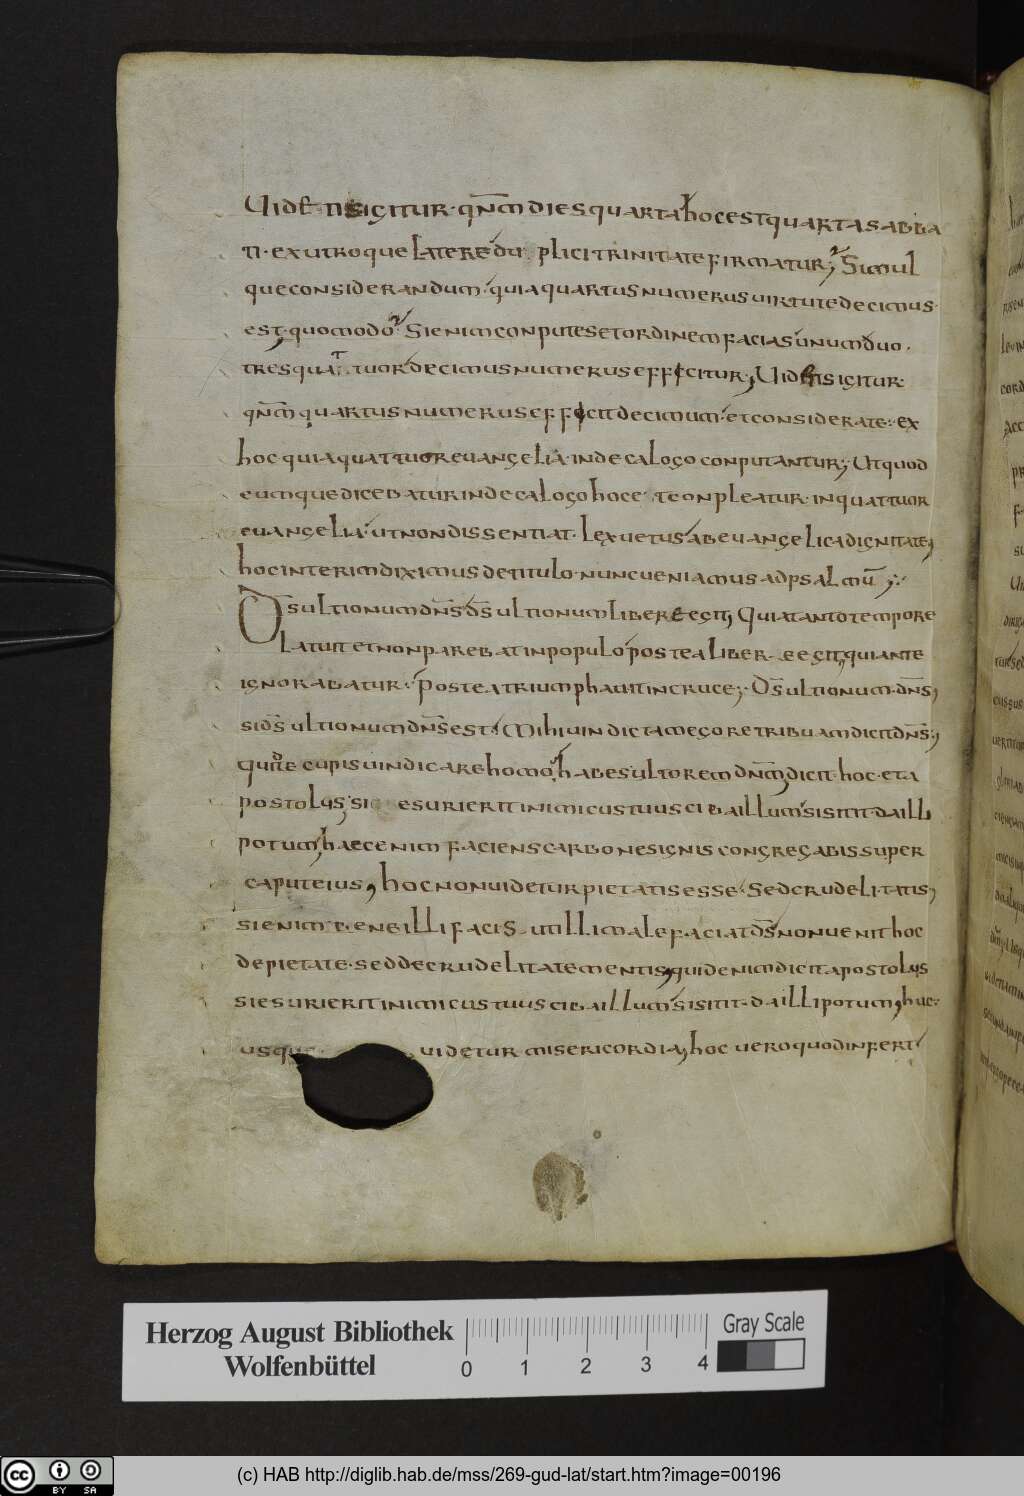 Uidetis igitur · qnm dies quarta hoc est quarta sabba
ti · ex utroque latere duplici trinitate firmatur; Simul
que considerandum · quia quartus numerus uirtute decimus
est; quomodo? Si enim conputes et ordinem facias unum duo ·
tres quattuor decimus numerus efficitur; Uidetis igitur
qnm quartus numerus efficit decimum · et considerate : ex
hoc quia quattuor euangelia · in decalogo conputantur; Ut quod
eumque dicebatur in decalogo hoc conpleatur · in quattuor
euangelia · ut non dissentiat · lex uetus ab euangelica dignitate;
hoc interim diximus de titulo · nunc ueniamus ad psalmū;
Ds ultionum dns ds ultionum libere egit; Quia tanto tempore
latuit et non parebat in populo postea libere egit; quiante
ignorabatur · Postea triumphauit in cruce; Ds ultionum · dns;
si ds ultionum dns est · Mihi uindictam ego retribuam dicit dns;
quid te cupis uindicare homo? habes ultorem dnm; dicit · hoc · et a
postolus · si esurierit inimicus tuus ciba illum · si sitit · da illi
potum; haec enim faciens carbones ignis congregabis super
caput eius; hoc non uidetur pietatis esse · Sed crudelitatis;
si enim bene illi facis ut illi male faciat ds non uenit hoc
de pietate · sed de crudelitate mentis; quid enim dicit apostolus
si esurierit inimicus tuus ciba illum · si sitit · da illi potum; huc
usque uidetur misericordia; hoc uero quod infert
Herzog August Bibliothek
Wolfenbüttel
0 1 2 3 4
Gray Scale
cc BY SA
(c) HAB http://diglib.hab.de/mss/269-gud-lat/start.htm?image=00196